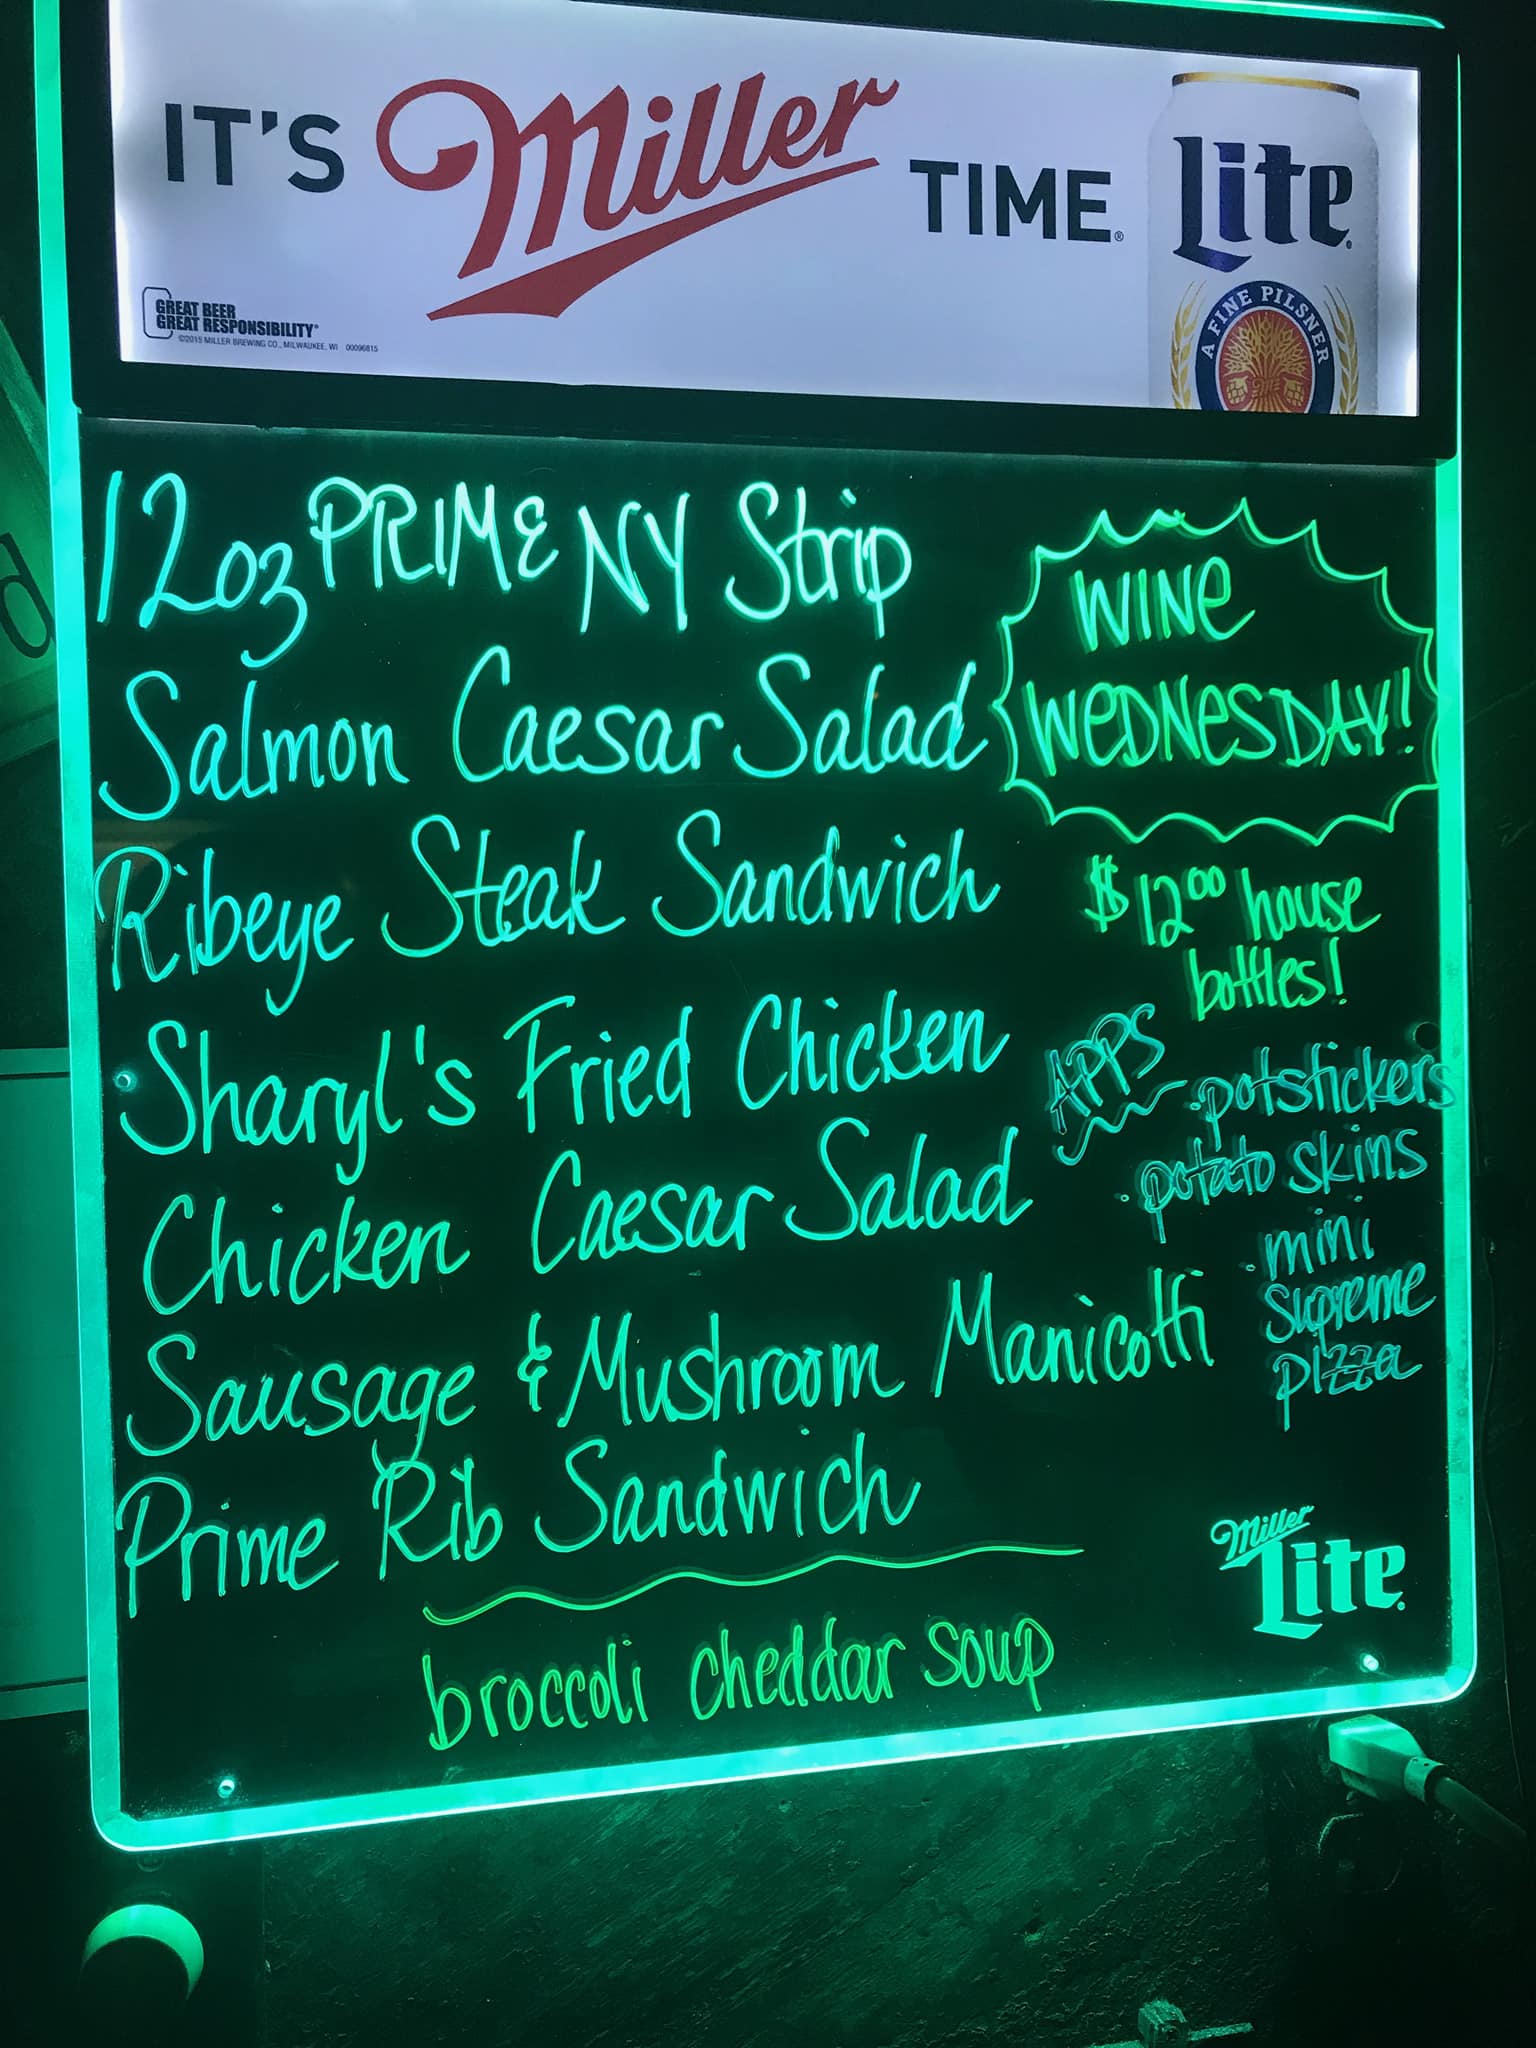 IT'S Miller TIME.®
Lite
A FINE PILSNER
GREAT BEER
GREAT RESPONSIBILITY®
©2015 MILLER BREWING CO., MILWAUKEE, WI 00096815
12oz PRIME NY Strip
Salmon Caesar Salad
Ribeye Steak Sandwich
Sharyl's Fried Chicken
Chicken Caesar Salad
Sausage & Mushroom Manicotti
Prime Rib Sandwich
broccoli cheddar soup
WINE
WEDNESDAY!!
$12.00 house
bottles!
APPS
· potstickers
· potato skins
· mini
supreme
pizza
Miller
Lite
d